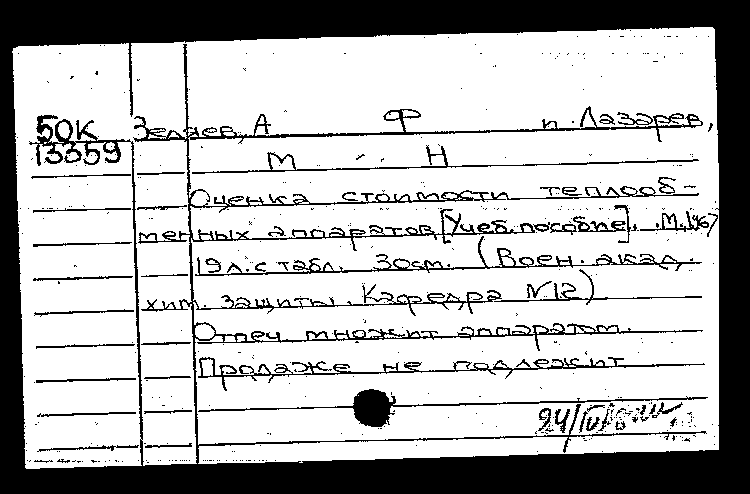 50К Зеляев, А Ф и Лазарев,
13359 М Н
Оценка стоимости теплооб-
менных аппаратов [Учеб. пособие]. М. 1967
19 л. с табл. 30 см. (Воен. акад.
хим. защиты. Кафедра N12)
Отпеч. множит аппаратом.
Продаже не подлежит
24/IV